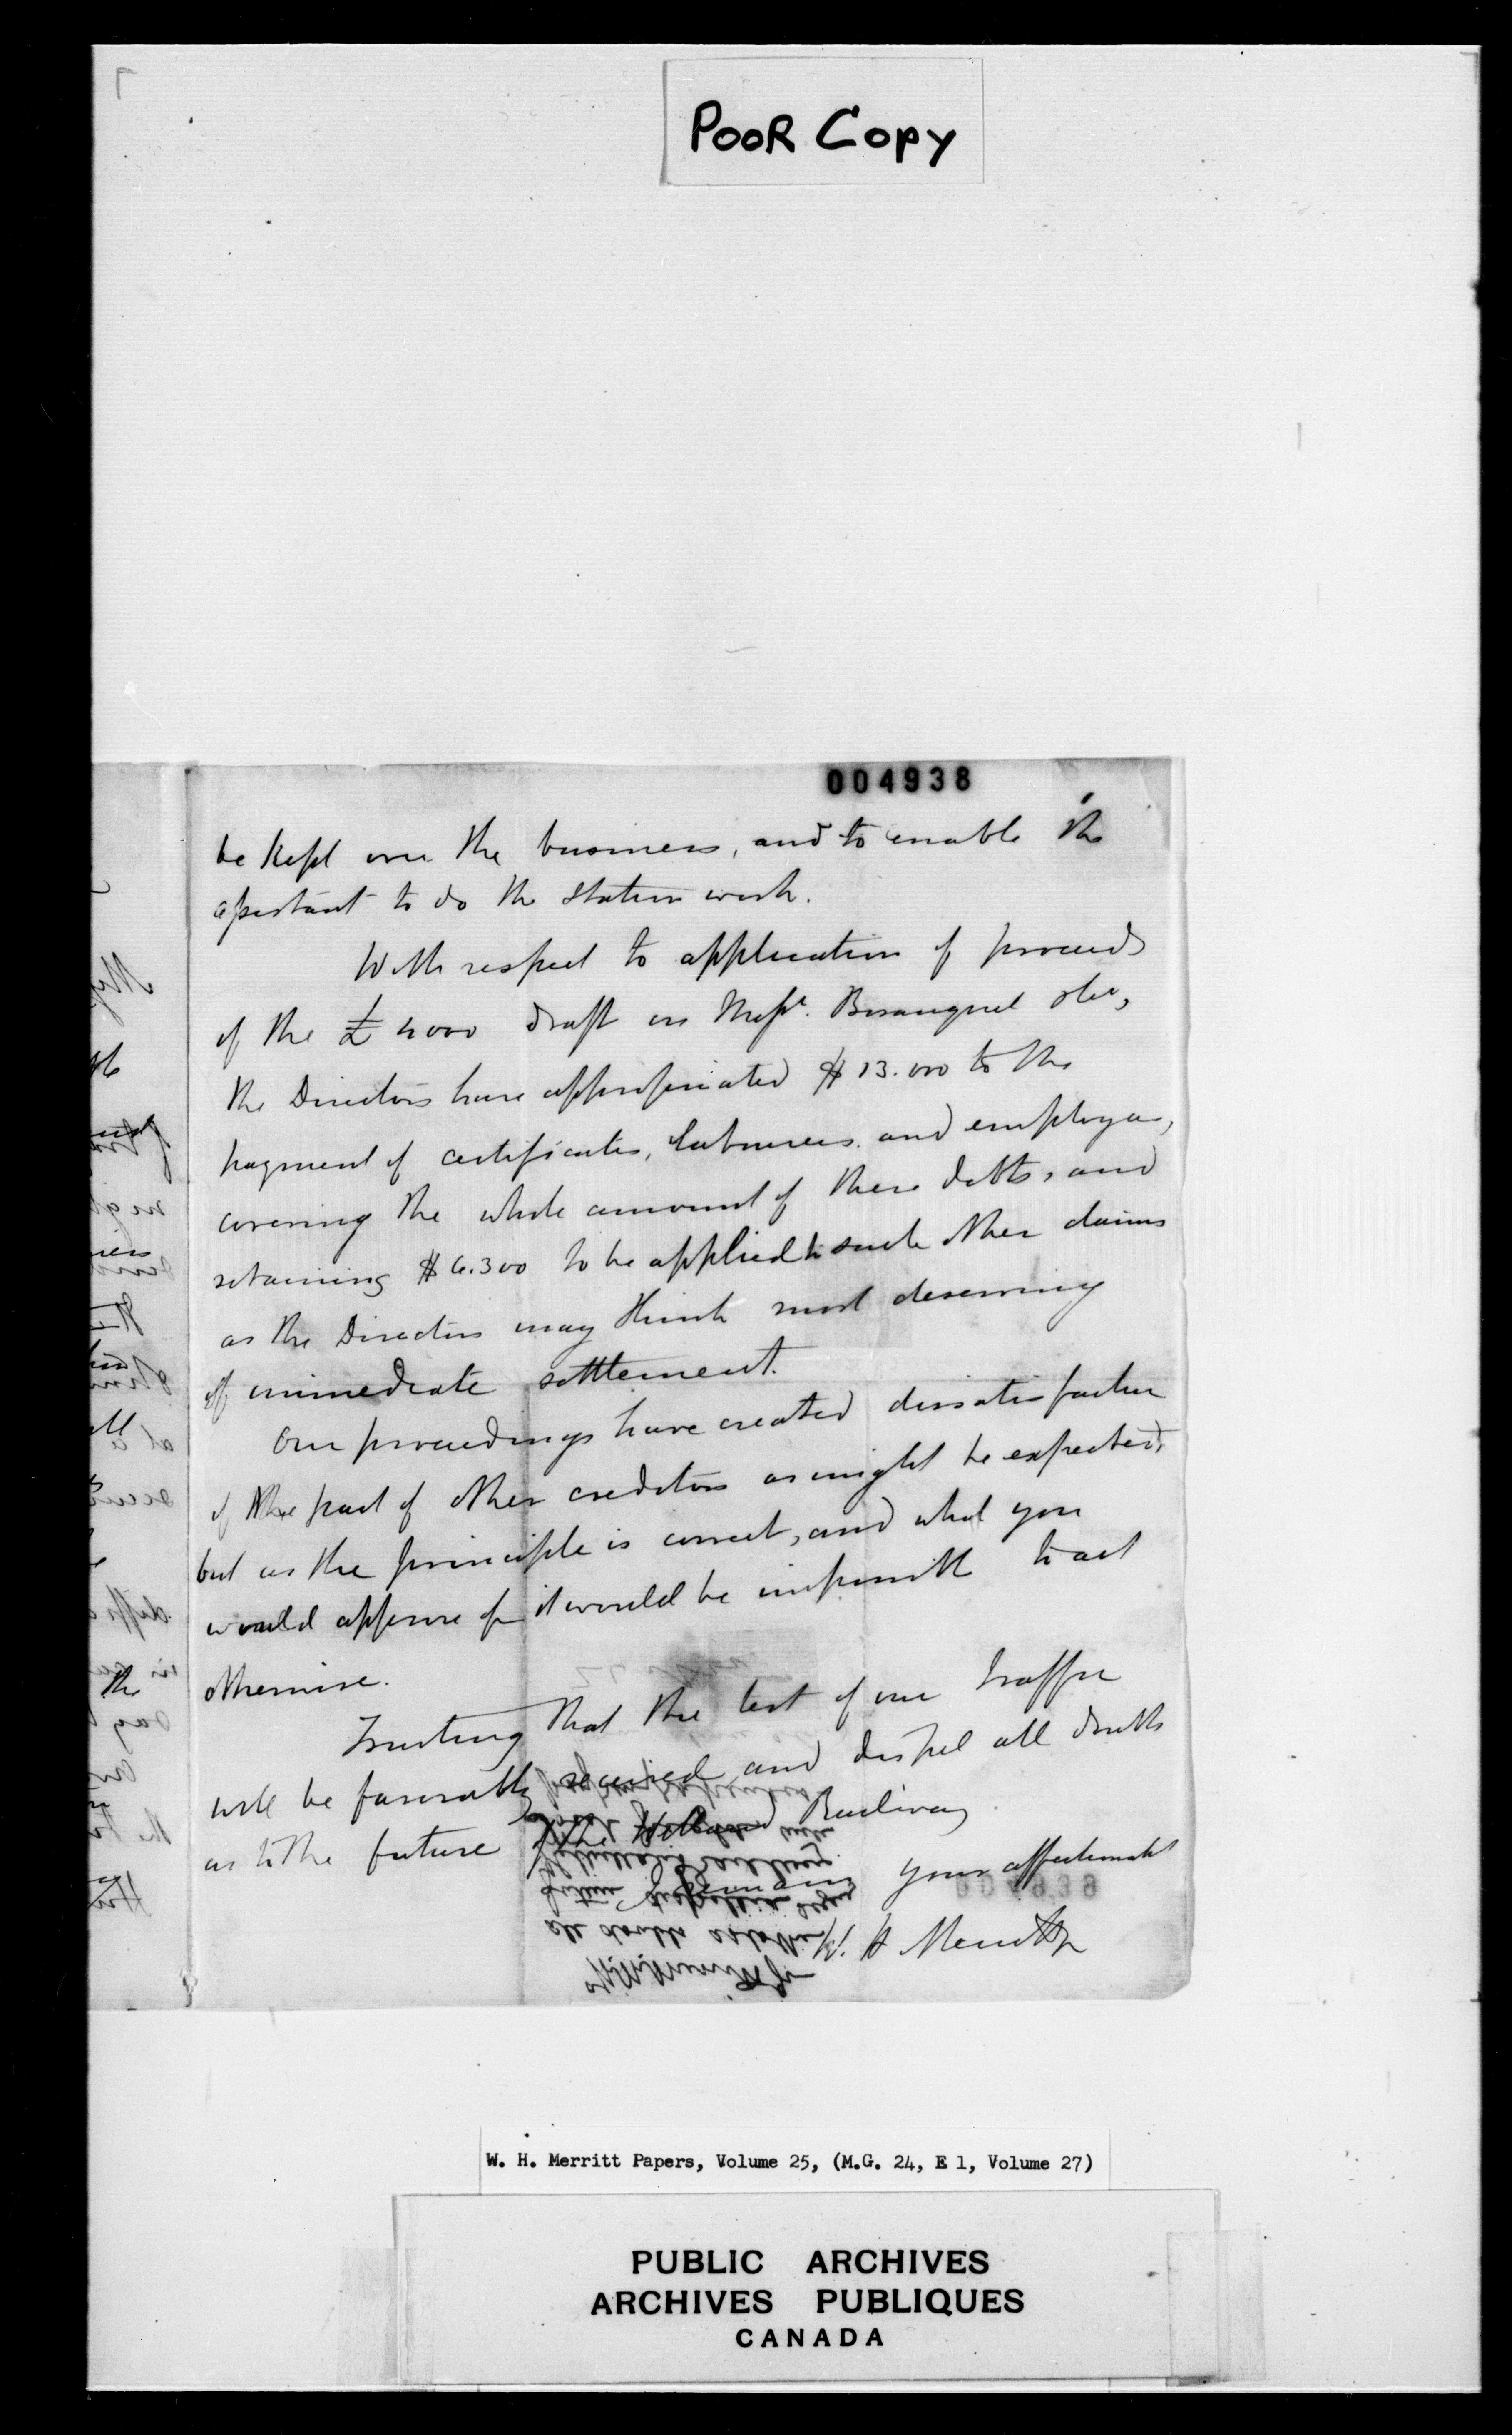 POOR COPY
004938
be kept over the business, and to enable the
assistant to do the station work.
With respect to application of proceeds
of the £4000 draft on Messrs. Bosanquet &c,
the Directors have appropriated $13.000 to the
payment of certificates, labourers and employees,
covering the whole amount of these debts, and
retaining $6.300 to be applied to such other claims
as the Directors may think most deserving
of immediate settlement.
Our proceedings have created dissatisfaction
of the part of other creditors as might be expected,
but as the principle is correct, and what you
would approve of it would be impossible to act
otherwise.
Trusting that the test of our traffic
will be favorably received and dispel all doubts
as to the future of the Welland Railway
I remain your affectionate
W. H. Merritt Jr
W. H. Merritt Papers, Volume 25, (M.G. 24, E 1, Volume 27)
PUBLIC ARCHIVES
ARCHIVES PUBLIQUES
CANADA